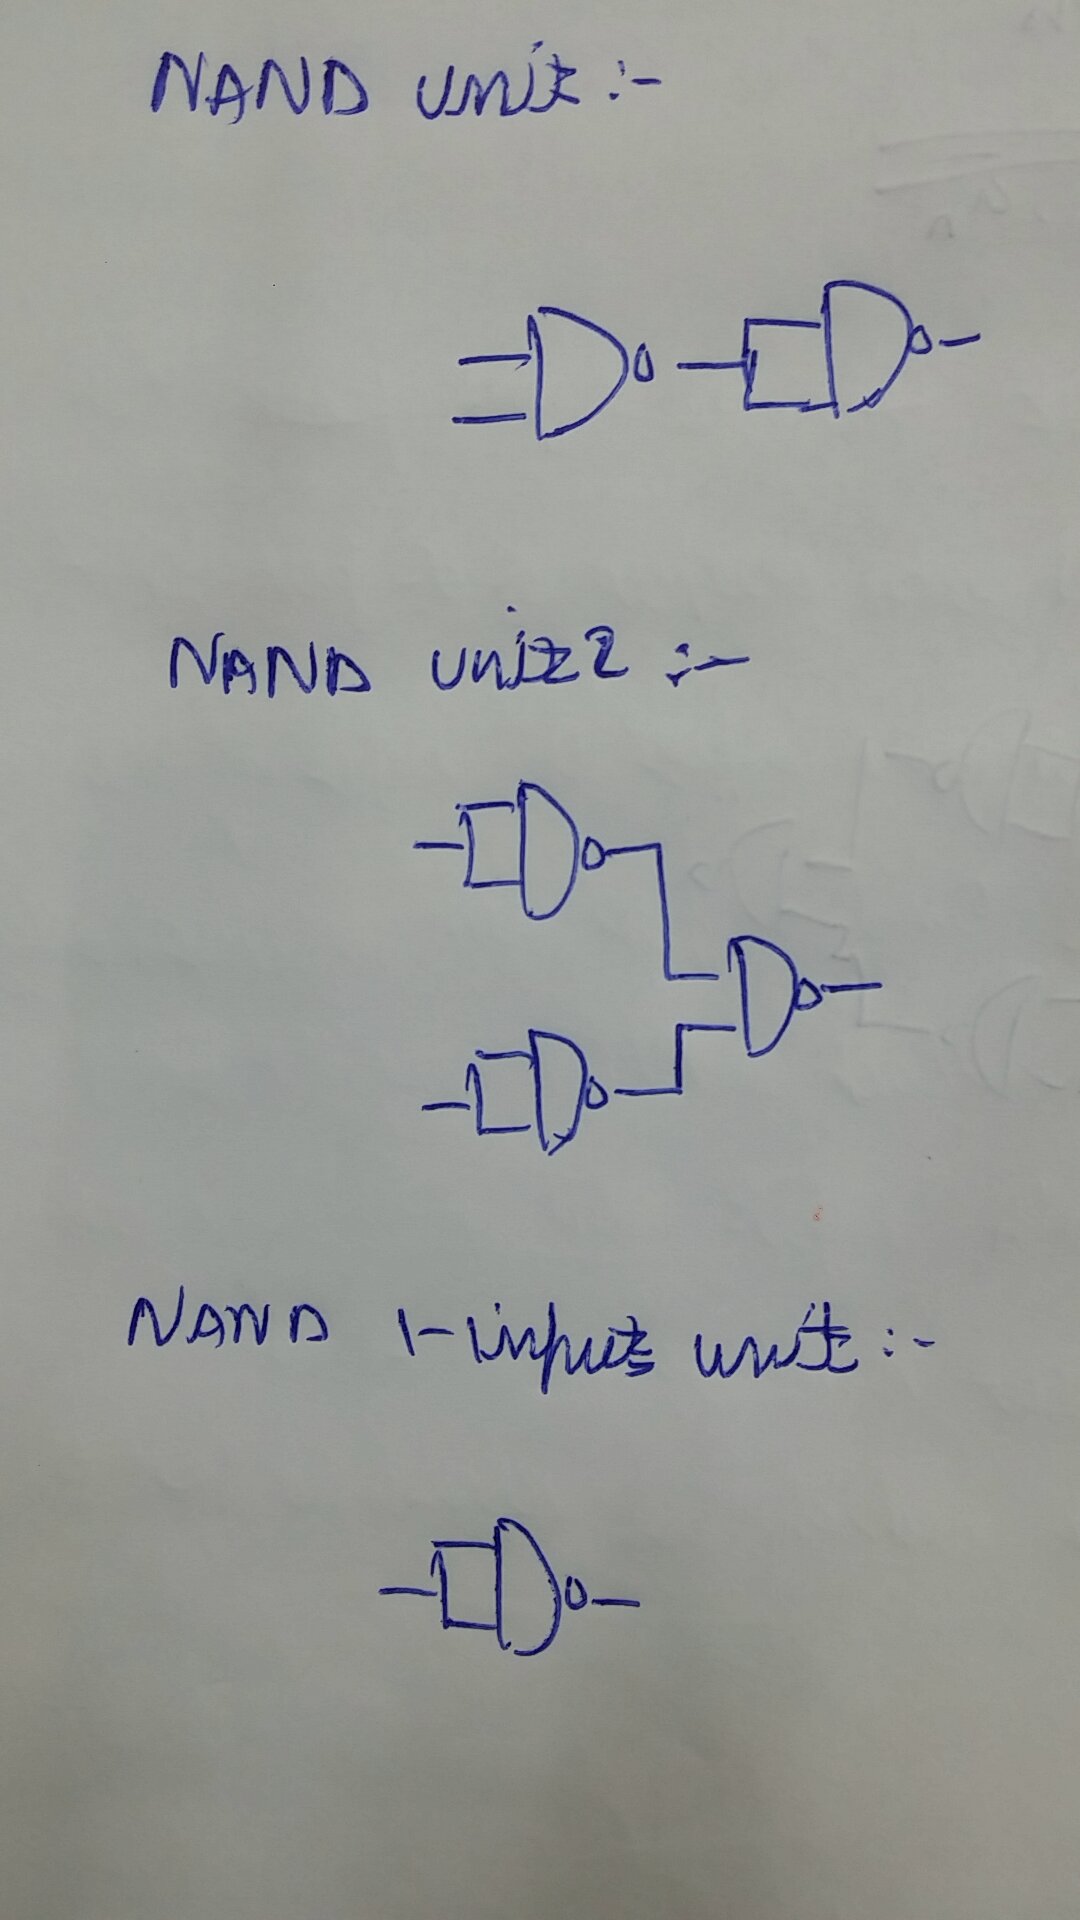 NAND unit :-
NAND unit 2 :-
NAND 1-input unit :-